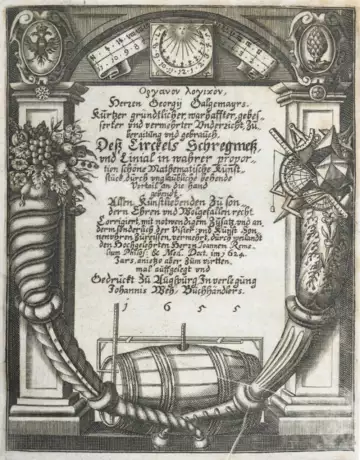 Οργανον λογικον,
Herren Georgij Galgemayrs.
Kurtzer gründtlicher, warhaffter, gebes-
serter und vermehrter Underricht, Zu
beraitung und gebrauch,
Deß Circkels Schregmeß,
und Linial in wahrer propor-
tion schöne Mathematische Kunst
stück, durch unglaubliche behende
Vortail an die hand
Allen Kunstliebenden Zu son-
dern Ehren und Wolgefallen recht
Corrigiert, mit notwendigem Zusatz, und an
dern sonderlich der Visier und Kunst Son-
nenuhren Zureissen, vermehrt, durch weilandt
den Hochgelehrten Herrn Joannem Reme-
lium Philos: & Med. Doct. im 1624.
Jars, anietzo aber zum virtten
mal auffgelegt und
Gedruckt Zu Augspurg In verlegung
Johannis Weh, Buchhändlers.
1655